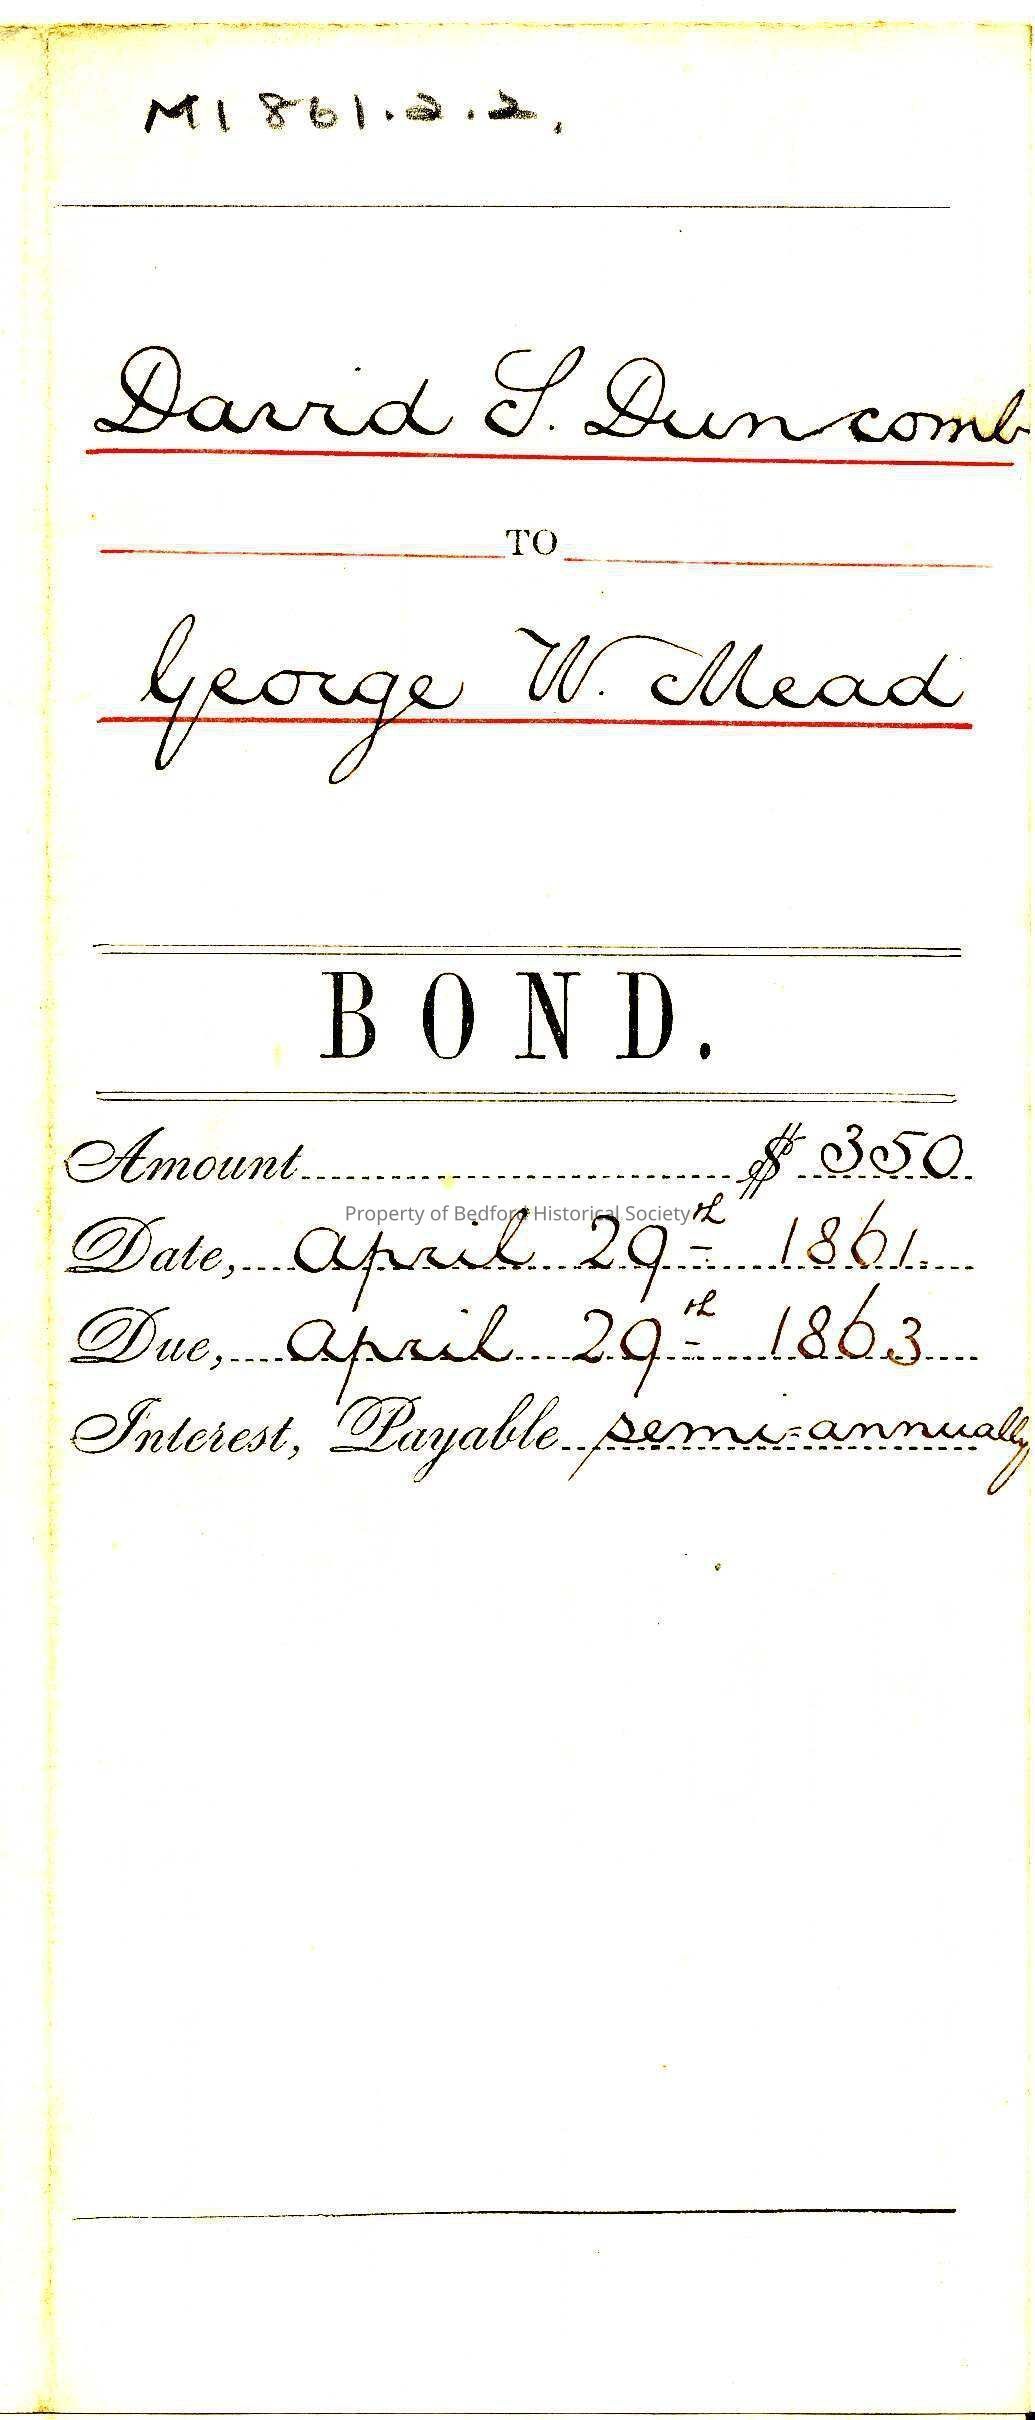 M1861.2.2.
David S. Duncomb
TO
George W. Mead
BOND.
Amount $ 350
Property of Bedford Historical Society
Date, April 29th 1861.
Due, April 29th 1863
Interest, Payable semi-annually